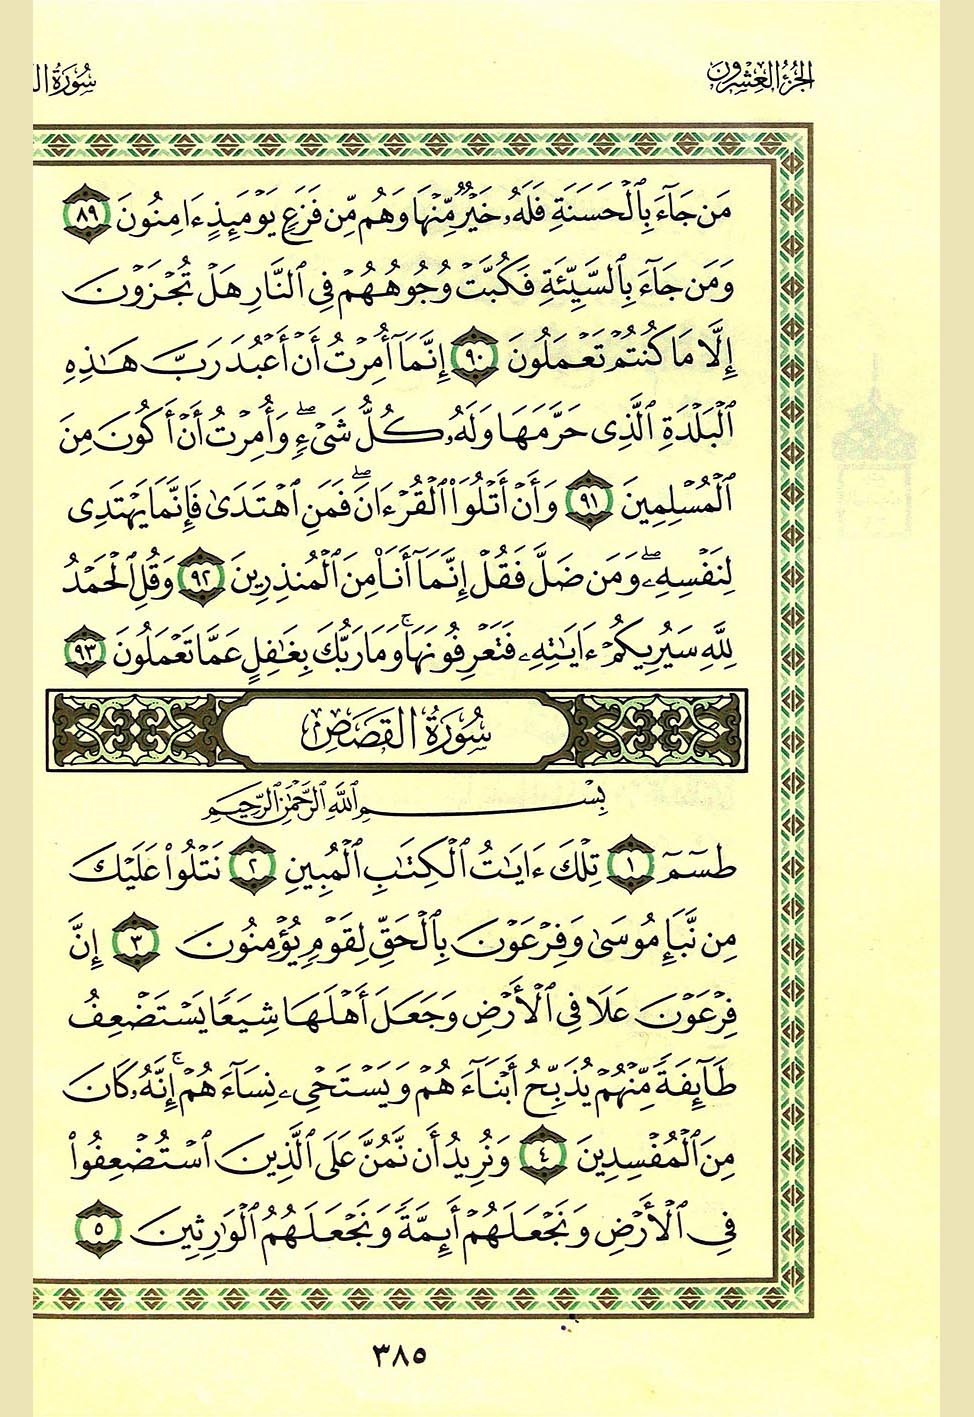 الجزء العشرون
سورة ال
مَن جَآءَ بِٱلْحَسَنَةِ فَلَهُۥ خَيْرٌ مِّنْهَا وَهُم مِّن فَزَعٍ يَوْمَئِذٍ ءَامِنُونَ ٨٩
وَمَن جَآءَ بِٱلسَّيِّئَةِ فَكُبَّتْ وُجُوهُهُمْ فِى ٱلنَّارِ هَلْ تُجْزَوْنَ
إِلَّا مَا كُنتُمْ تَعْمَلُونَ ٩٠ إِنَّمَآ أُمِرْتُ أَنْ أَعْبُدَ رَبَّ هَٰذِهِ
ٱلْبَلْدَةِ ٱلَّذِى حَرَّمَهَا وَلَهُۥ كُلُّ شَىْءٍ ۖ وَأُمِرْتُ أَنْ أَكُونَ مِنَ
ٱلْمُسْلِمِينَ ٩١ وَأَنْ أَتْلُوَا۟ ٱلْقُرْءَانَ ۖ فَمَنِ ٱهْتَدَىٰ فَإِنَّمَا يَهْتَدِى
لِنَفْسِهِۦ ۖ وَمَن ضَلَّ فَقُلْ إِنَّمَآ أَنَا۠ مِنَ ٱلْمُنذِرِينَ ٩٢ وَقُلِ ٱلْحَمْدُ
لِلَّهِ سَيُرِيكُمْ ءَايَٰتِهِۦ فَتَعْرِفُونَهَا ۚ وَمَا رَبُّكَ بِغَٰفِلٍ عَمَّا تَعْمَلُونَ ٩٣
سُورَةُ القَصَصِ
بِسْمِ ٱللَّهِ ٱلرَّحْمَٰنِ ٱلرَّحِيمِ
طسٓمٓ ١ تِلْكَ ءَايَٰتُ ٱلْكِتَٰبِ ٱلْمُبِينِ ٢ نَتْلُوا۟ عَلَيْكَ
مِن نَّبَإِ مُوسَىٰ وَفِرْعَوْنَ بِٱلْحَقِّ لِقَوْمٍ يُؤْمِنُونَ ٣ إِنَّ
فِرْعَوْنَ عَلَا فِى ٱلْأَرْضِ وَجَعَلَ أَهْلَهَا شِيَعًا يَسْتَضْعِفُ
طَآئِفَةً مِّنْهُمْ يُذَبِّحُ أَبْنَآءَهُمْ وَيَسْتَحْىِۦ نِسَآءَهُمْ ۚ إِنَّهُۥ كَانَ
مِنَ ٱلْمُفْسِدِينَ ٤ وَنُرِيدُ أَن نَّمُنَّ عَلَى ٱلَّذِينَ ٱسْتُضْعِفُوا۟
فِى ٱلْأَرْضِ وَنَجْعَلَهُمْ أَئِمَّةً وَنَجْعَلَهُمُ ٱلْوَٰرِثِينَ ٥
٣٨٥